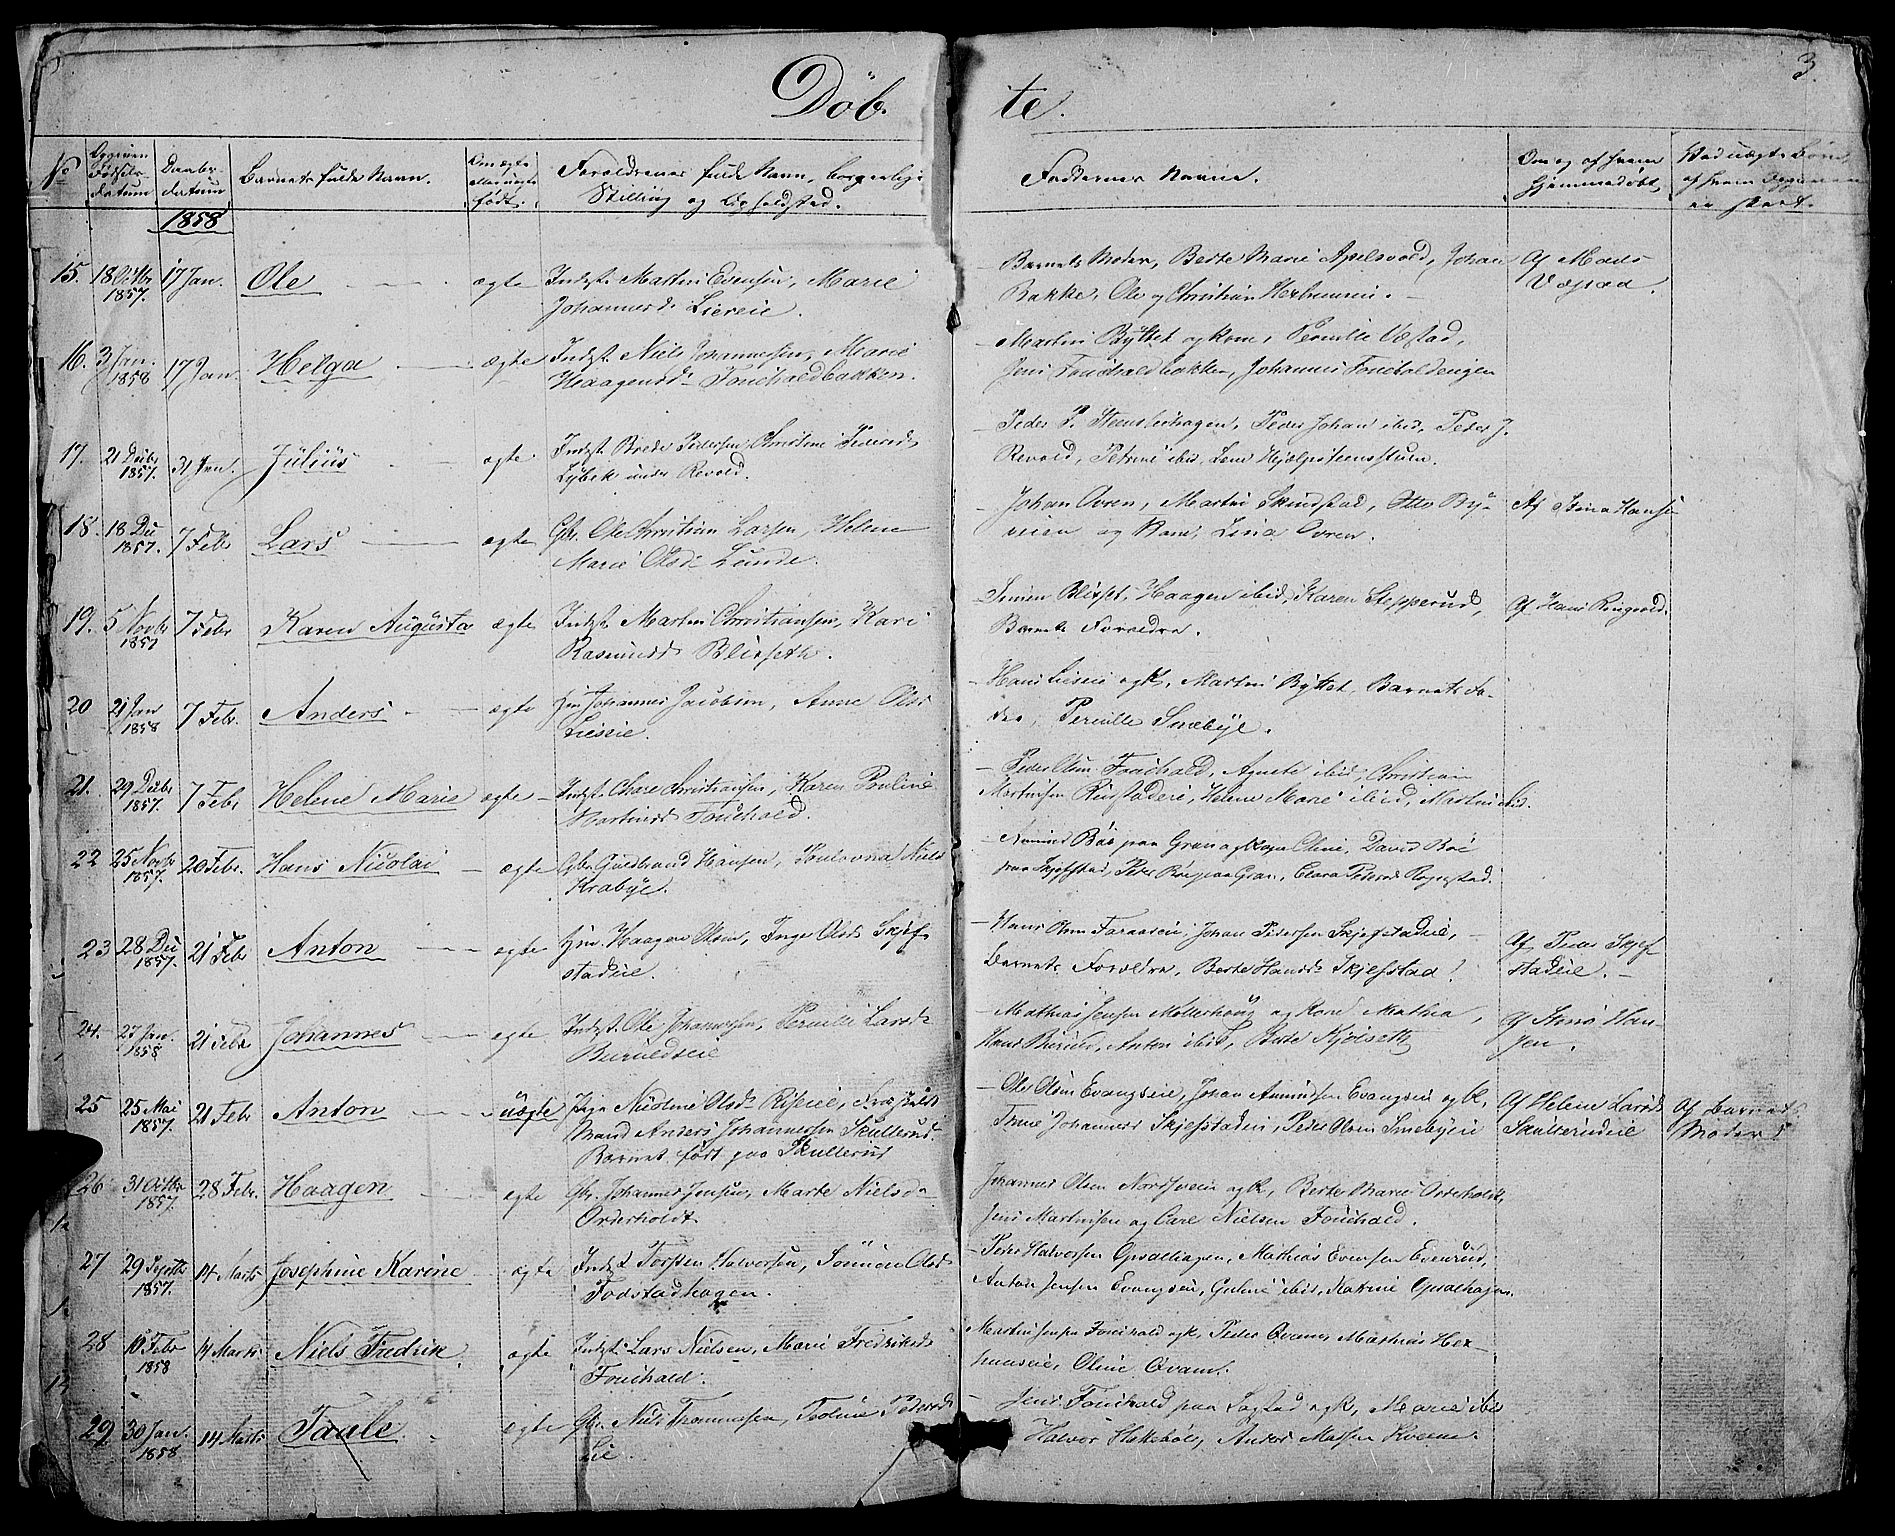 Döb te.
3
No
Opgiven Fødsels datum
Daabs datum
Barnets fulde Navn.
Om ægte eller uægte født.
Forældrenes fulde Navn, borgerlige
Stilling og Opholdsted.
Faddernes Navne.
Om og af hvem
hjemmedøbt,
1858
15. 18 Octbr 1857. 17 Jan. Ole ægte Indst. Martin Evensen, Marie
Johannesd. Liereie.
Barnets Moder, Berte Marie Apelsvold, Johan
Bakke, Ole og Christian
Af Mads
16. 3 Jan. 1858 17 Jan. Helga ægte Indst. Niels Johannesen, Marie
Haagensd. Fouchaldbakken.
Martin Byttet og Kone, Pernille
Jens Fouchaldbakken, Johannes
17. 21 Decbr 1857. 31 Jan. Julius ægte Indst. Brede Pedersen, Christine Pedersd.
Lybek under Revold.
Peder P. Steensliehagen, Peder Johan ibid, Peder J.
Revold, Petrine ibid, Lene
18. 18 Dec 1857. 7 Febr Lars ægte Gbr. Ole Christian Larsen, Helene
Marie Olsd. Lunde.
Johan Ovren, Martin Skundstad, Otto By-
og Kone, Lina Ovren.
Af Stina Hanse
19. 5 Novbr 1857 7 Febr Karen Augusta ægte Indst. Martin Christiansen, Kari
Rasmusd. Blixseth.
Simen Blixset, Haagen ibid, Karen Stepperud,
Barnets Forældre.
Af Hans Ringvold.
20 21 Jan 1858 7 Febr. Anders ægte Hm Johannes Jacobsen, Anne Olsd.
Liereie.
Hans Liereie og K, Martin Byttet, Barnets Fa-
der, Pernille Snæbye.
21. 29 Decbr 1857. 7 Febr Helene Marie ægte Indst. Christiansen, Karen Pouline
Martinsd. Fouchald.
Peder Olsen Fouchald, Agnete ibid, Christian
Martinsen Rustadeie, Helene Marie ibid, Martin ibid.
22 25 Novbr 1857. 20 Febr. Hans Nicolai ægte Gbr. Guldbrand Hansen, Niels
Krabye.
Böe paa Gran og Kone Oline, David Böe
paa Skjefstad, Peder Böe paa Gran, Clara
23 28 Dec 1857. 21 Febr Anton ægte Hm Haagen Olsen, Inge Olsd. Skjef
stadeie.
Hans Olsen Johan Pedersen Skjefstadeie,
Barnets Forældre, Berte Hansd. Skjefstad
Af Peder Skjef
stadeie.
24. 27 Jan. 1858 21 Febr Johannes ægte Indst. Ole Johannesen, Pernille Larsd.
Mathias Jensen Mollerhaug og Kone Mathia,
Hans Anton ibid, Berte Kjölseth
Af Han-
sen.
25 25 Mai 1857. 21 Febr Anton uægte Pige Nicoline Olsd. Riseie,
Mand Anders Johannessen Skullerud.
Barnet født paa Skullerud
Ole Olsen Evangseie, Johan Amundsen Evangseie og K,
Anne Johannesd. Skjefstadeie, Peder Olsen Smebyeie
Af Helene Larsd.
Skullerudeie
Af Barnets
Moder
26 31 Octbr 1857. 28 Febr. Haagen ægte Gbr. Johannes Jensen, Marte Nielsd.
Orderholdt.
Johannes Olsen Nordsveen og K, Berte Marie Orderholdt,
Jens Martinsen og Carl Nielsen Fouchald.
27 29 Septbr 1857. 14 Marts Josephine Karine ægte Indst. Torsten Halvorsen, Olsd
Fodstadhagen.
Peder Halvorsen Opsalhagen, Mathias Evensen Evenrud,
Anton Jensen Evangseie, Guline ibid, Karine Opsalhagen.
28 10 Febr 1858 14 Marts Niels Fredrik ægte Indst. Lars Nielsen, Marie Fredriksd.
Fouchald.
Martinsen Fouchald og K, Peder Qvam, Mathias
Oline Qvam.
29 30 Jan. 1858 14 Marts Taale ægte Gbr. Niels Thommesen, Toline Pedersd.
Lie.
Jens Fouchald paa Lagstad og K, Marie ibid
Halvor Anders Madsen